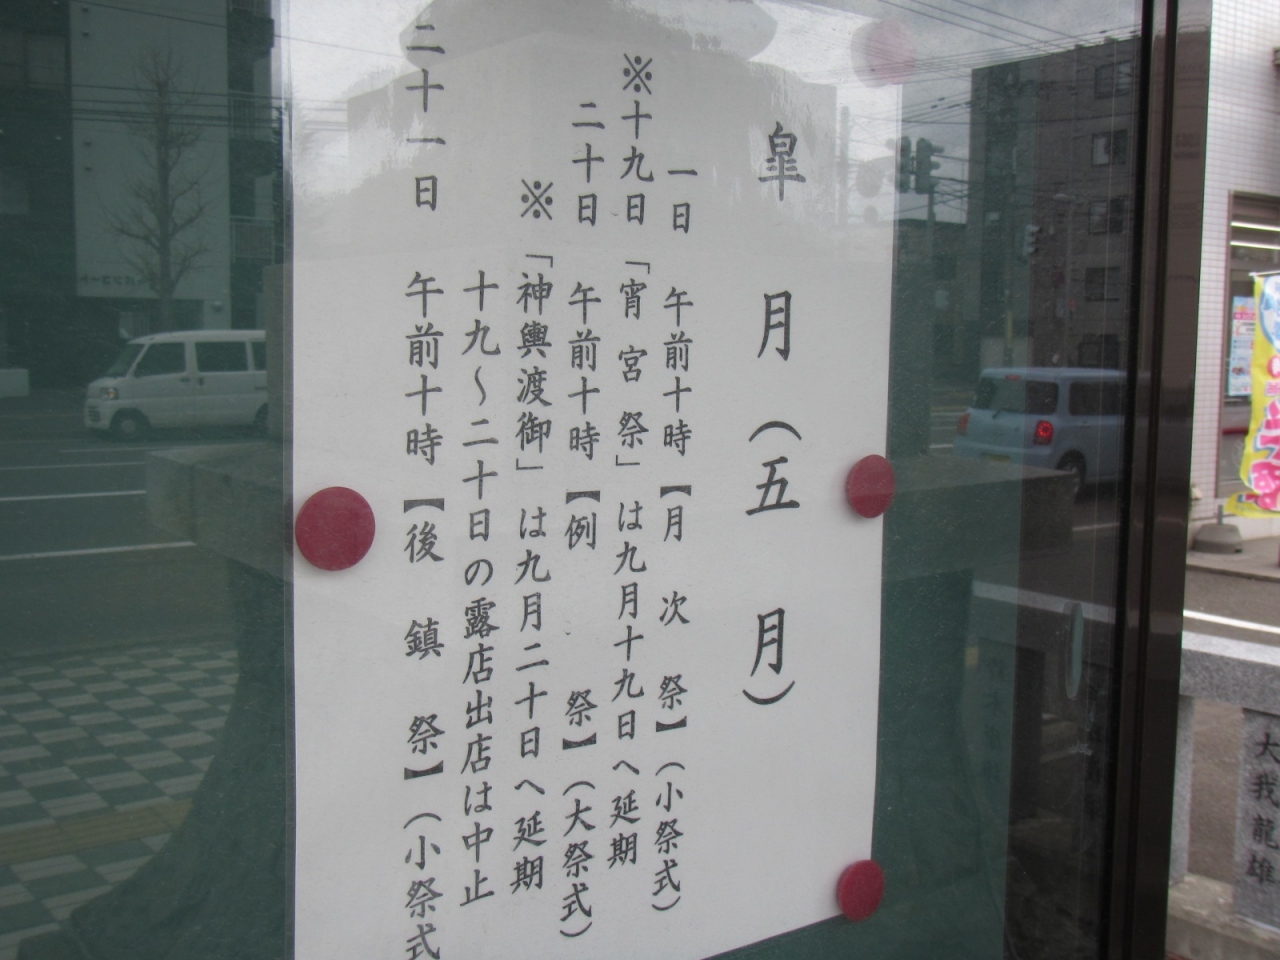 皐月(五月)
一日 午前十時【月次祭】(小祭式)
※十九日「宵宮祭」は九月十九日へ延期
二十日 午前十時【例祭】(大祭式)
※「神輿渡御」は九月二十日へ延期
十九〜二十日の露店出店は中止
二十一日 午前十時【後鎮祭】(小祭式
大我龍雄